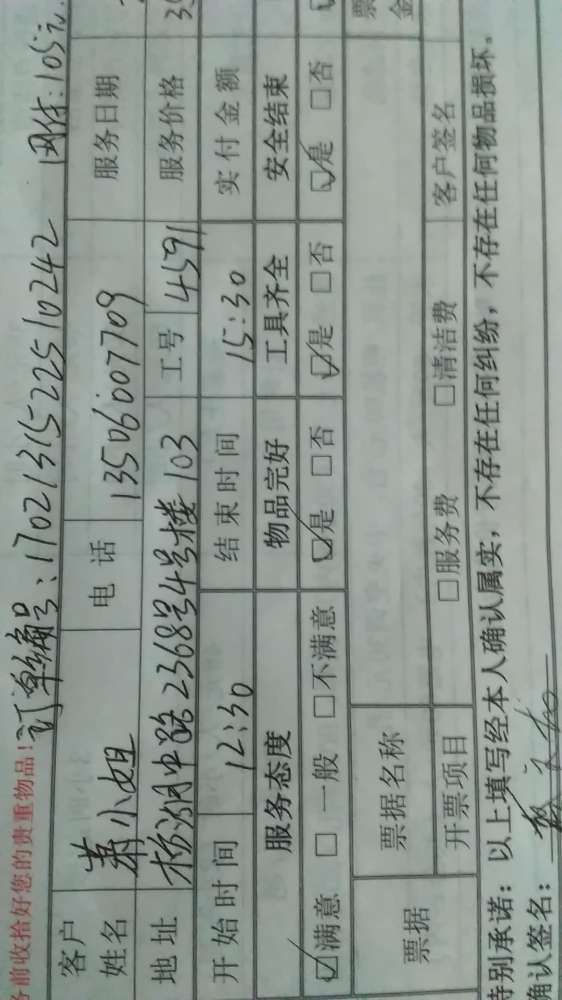 务前收拾好您的贵重物品! 订单编号:1702131522510242 网付:105元
客户姓名 萧小姐 电话 13506007709 服务日期
地址 杨湖中路2368号4号楼103 工号 4591 服务价格
开始时间 12:30 结束时间 15:30 实付金额
服务态度 物品完好 工具齐全 安全结束
☑满意 □一般 □不满意 ☑是 □否 ☑是 □否 ☑是 □否
票据 票据名称 票 金
开票项目 □服务费 □清洁费 客户签名
特别承诺:以上填写经本人确认属实,不存在任何纠纷,不存在任何物品损坏。
确认签名: